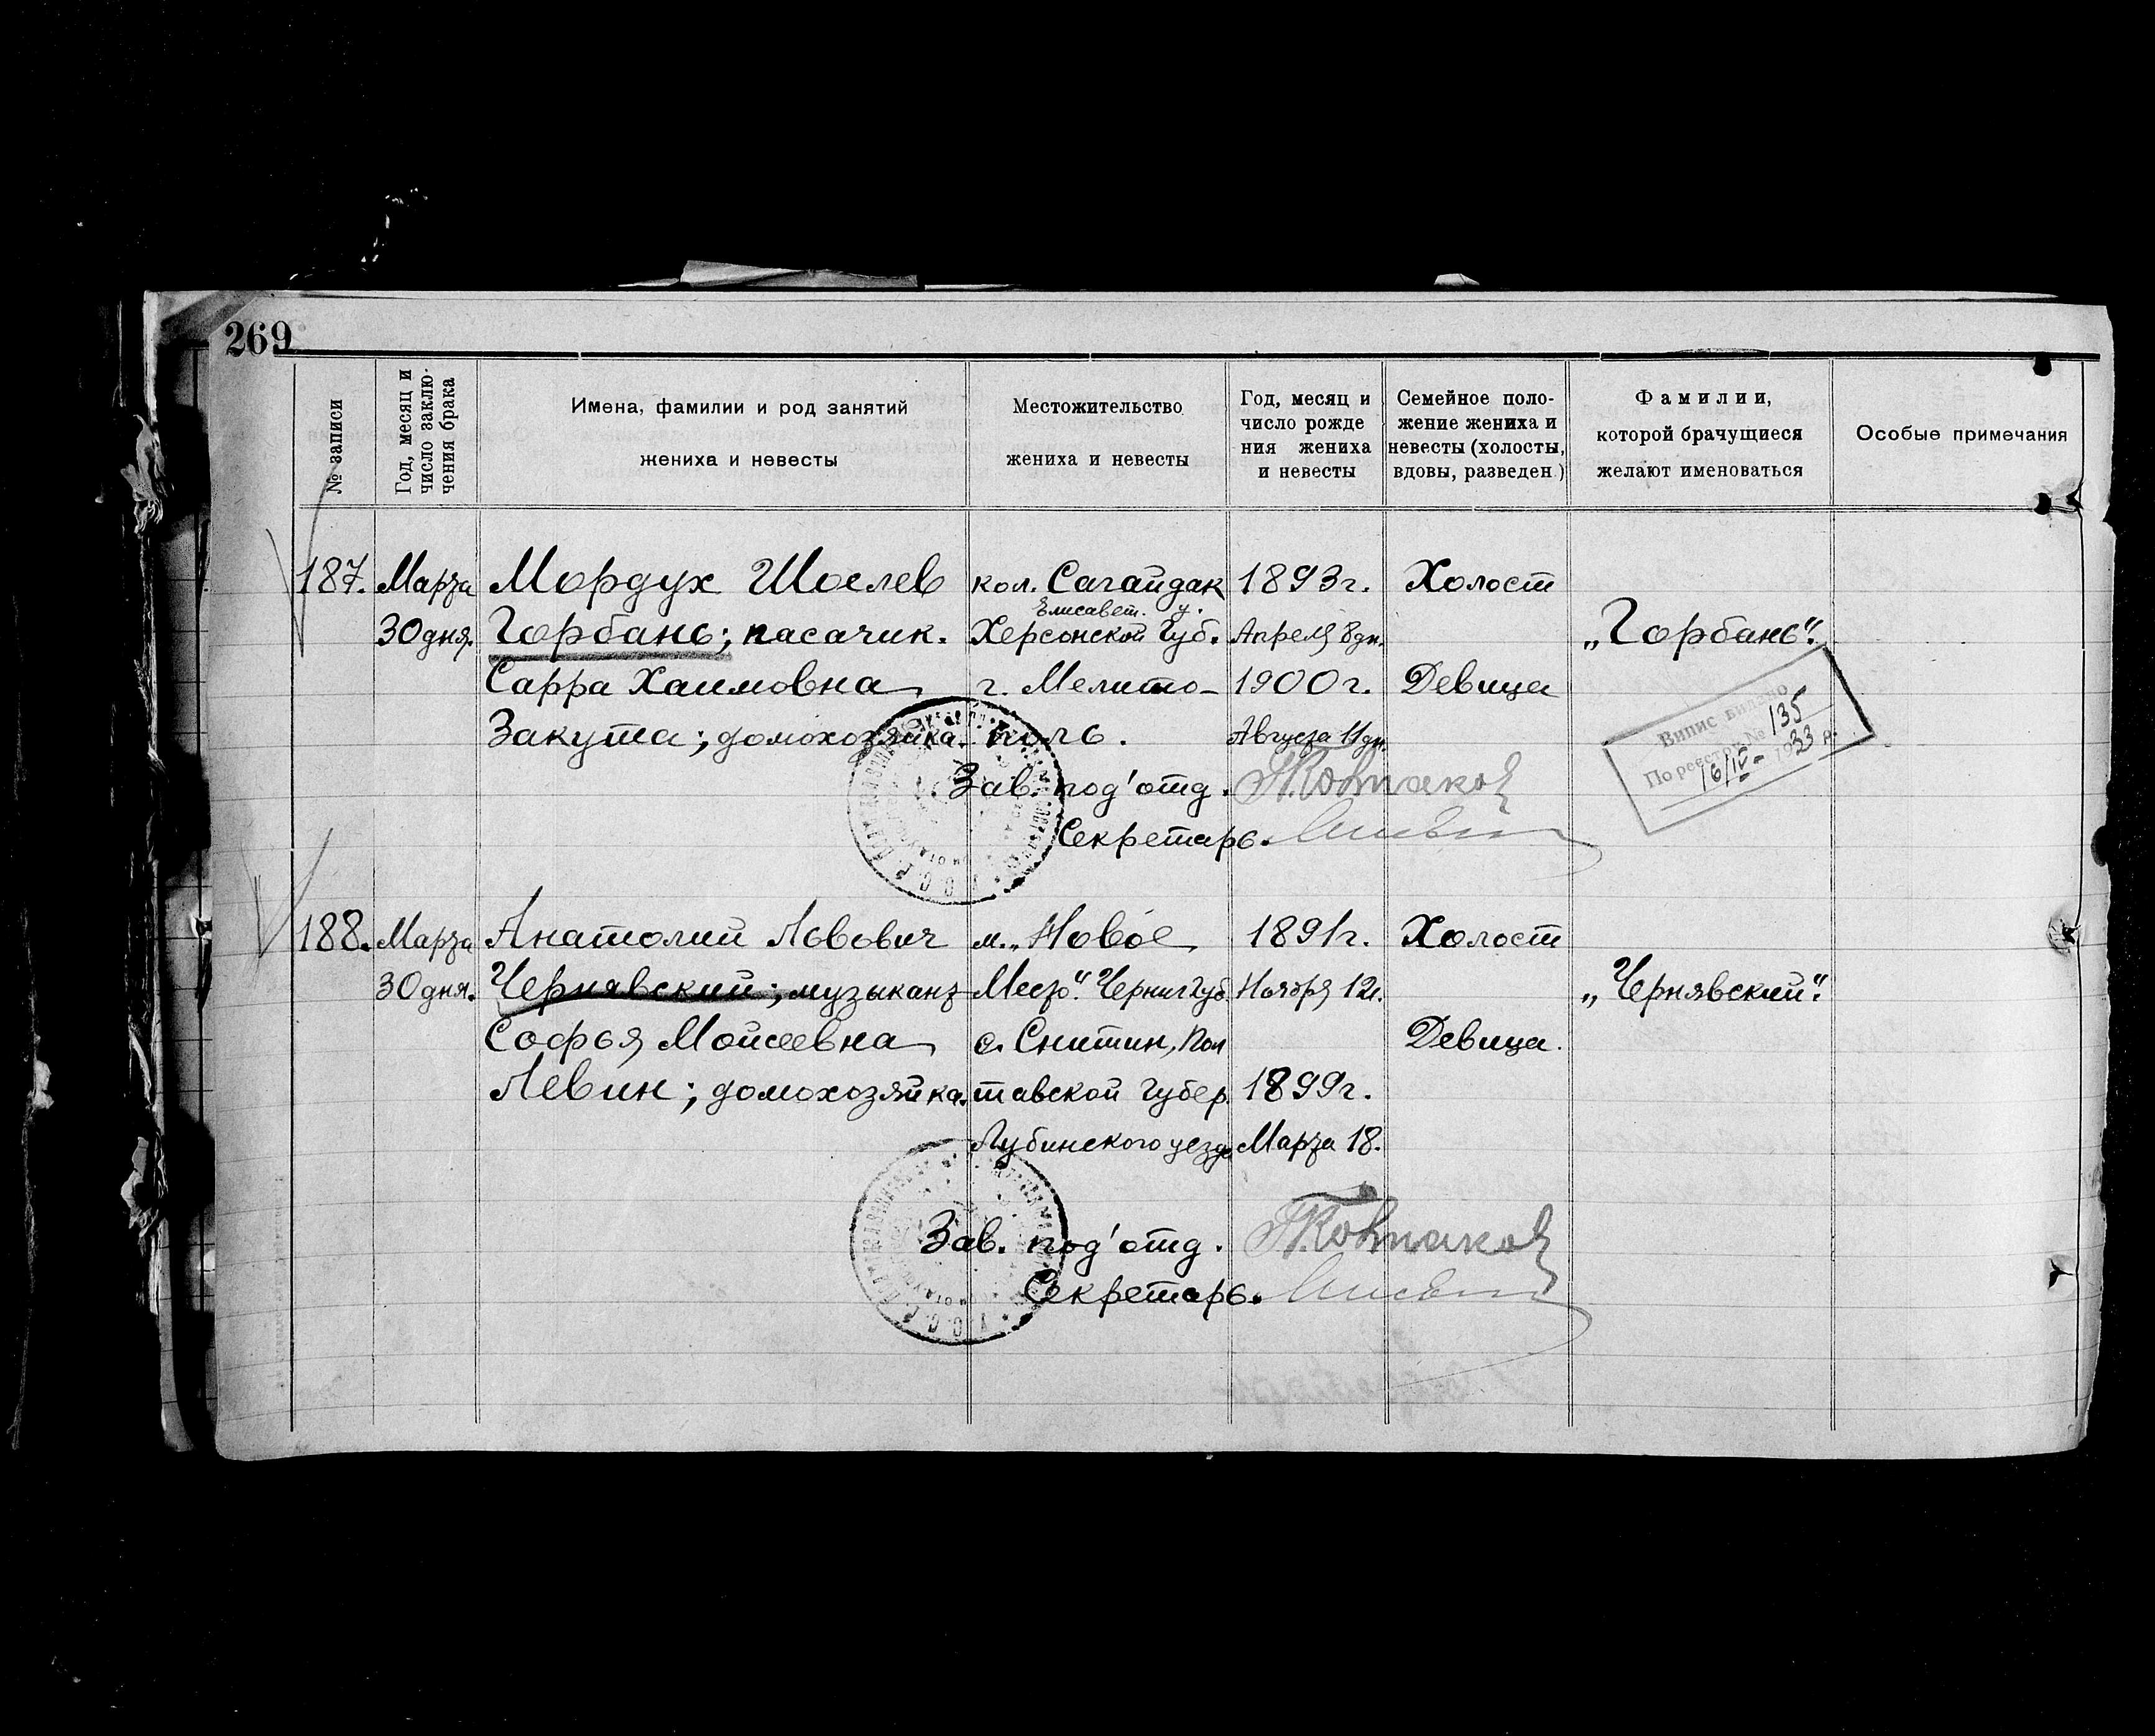 269
№ записи
Год, месяц и
число заклю-
чения брака
Имена, фамилии и род занятий
жениха и невесты
Местожительство
жениха и невесты
Год, месяц и
число рожде
ния жениха
и невесты
Семейное поло-
жение жениха и
невесты (холосты,
вдовы, разведен.)
Фамилии,
которой брачущиеся
желают именоваться
Особые примечания
187. Марта Мордух Шоелев кол. Сагайдак 1893г. Холост
Елисавет. у.
30 дня. Горбань; пасачик. Херсонской губ. Апреля 8 дн. „Горбань".
Сарра Хаимовна г. Мелито- 1900г. Девица
Закута; домохозяйка. поль. Августа 11 дн.
Випис видано
По реєстру № 135
16/IV- 1933 р.
Зав. под'отд.
Секретарь.
188. Марта Анатолий Львович м. „Новое 1891г. Холост
30 дня. Чернявский; музыкант Место". Черниг губ. Ноября 12д. „Чернявский".
Софья Мойсеевна с. Снитин, Пол Девица.
Левин; домохозяйка. тавской губер. 1899г.
Лубинского уезда Марта 18.
Зав. под'отд.
Секретарь.